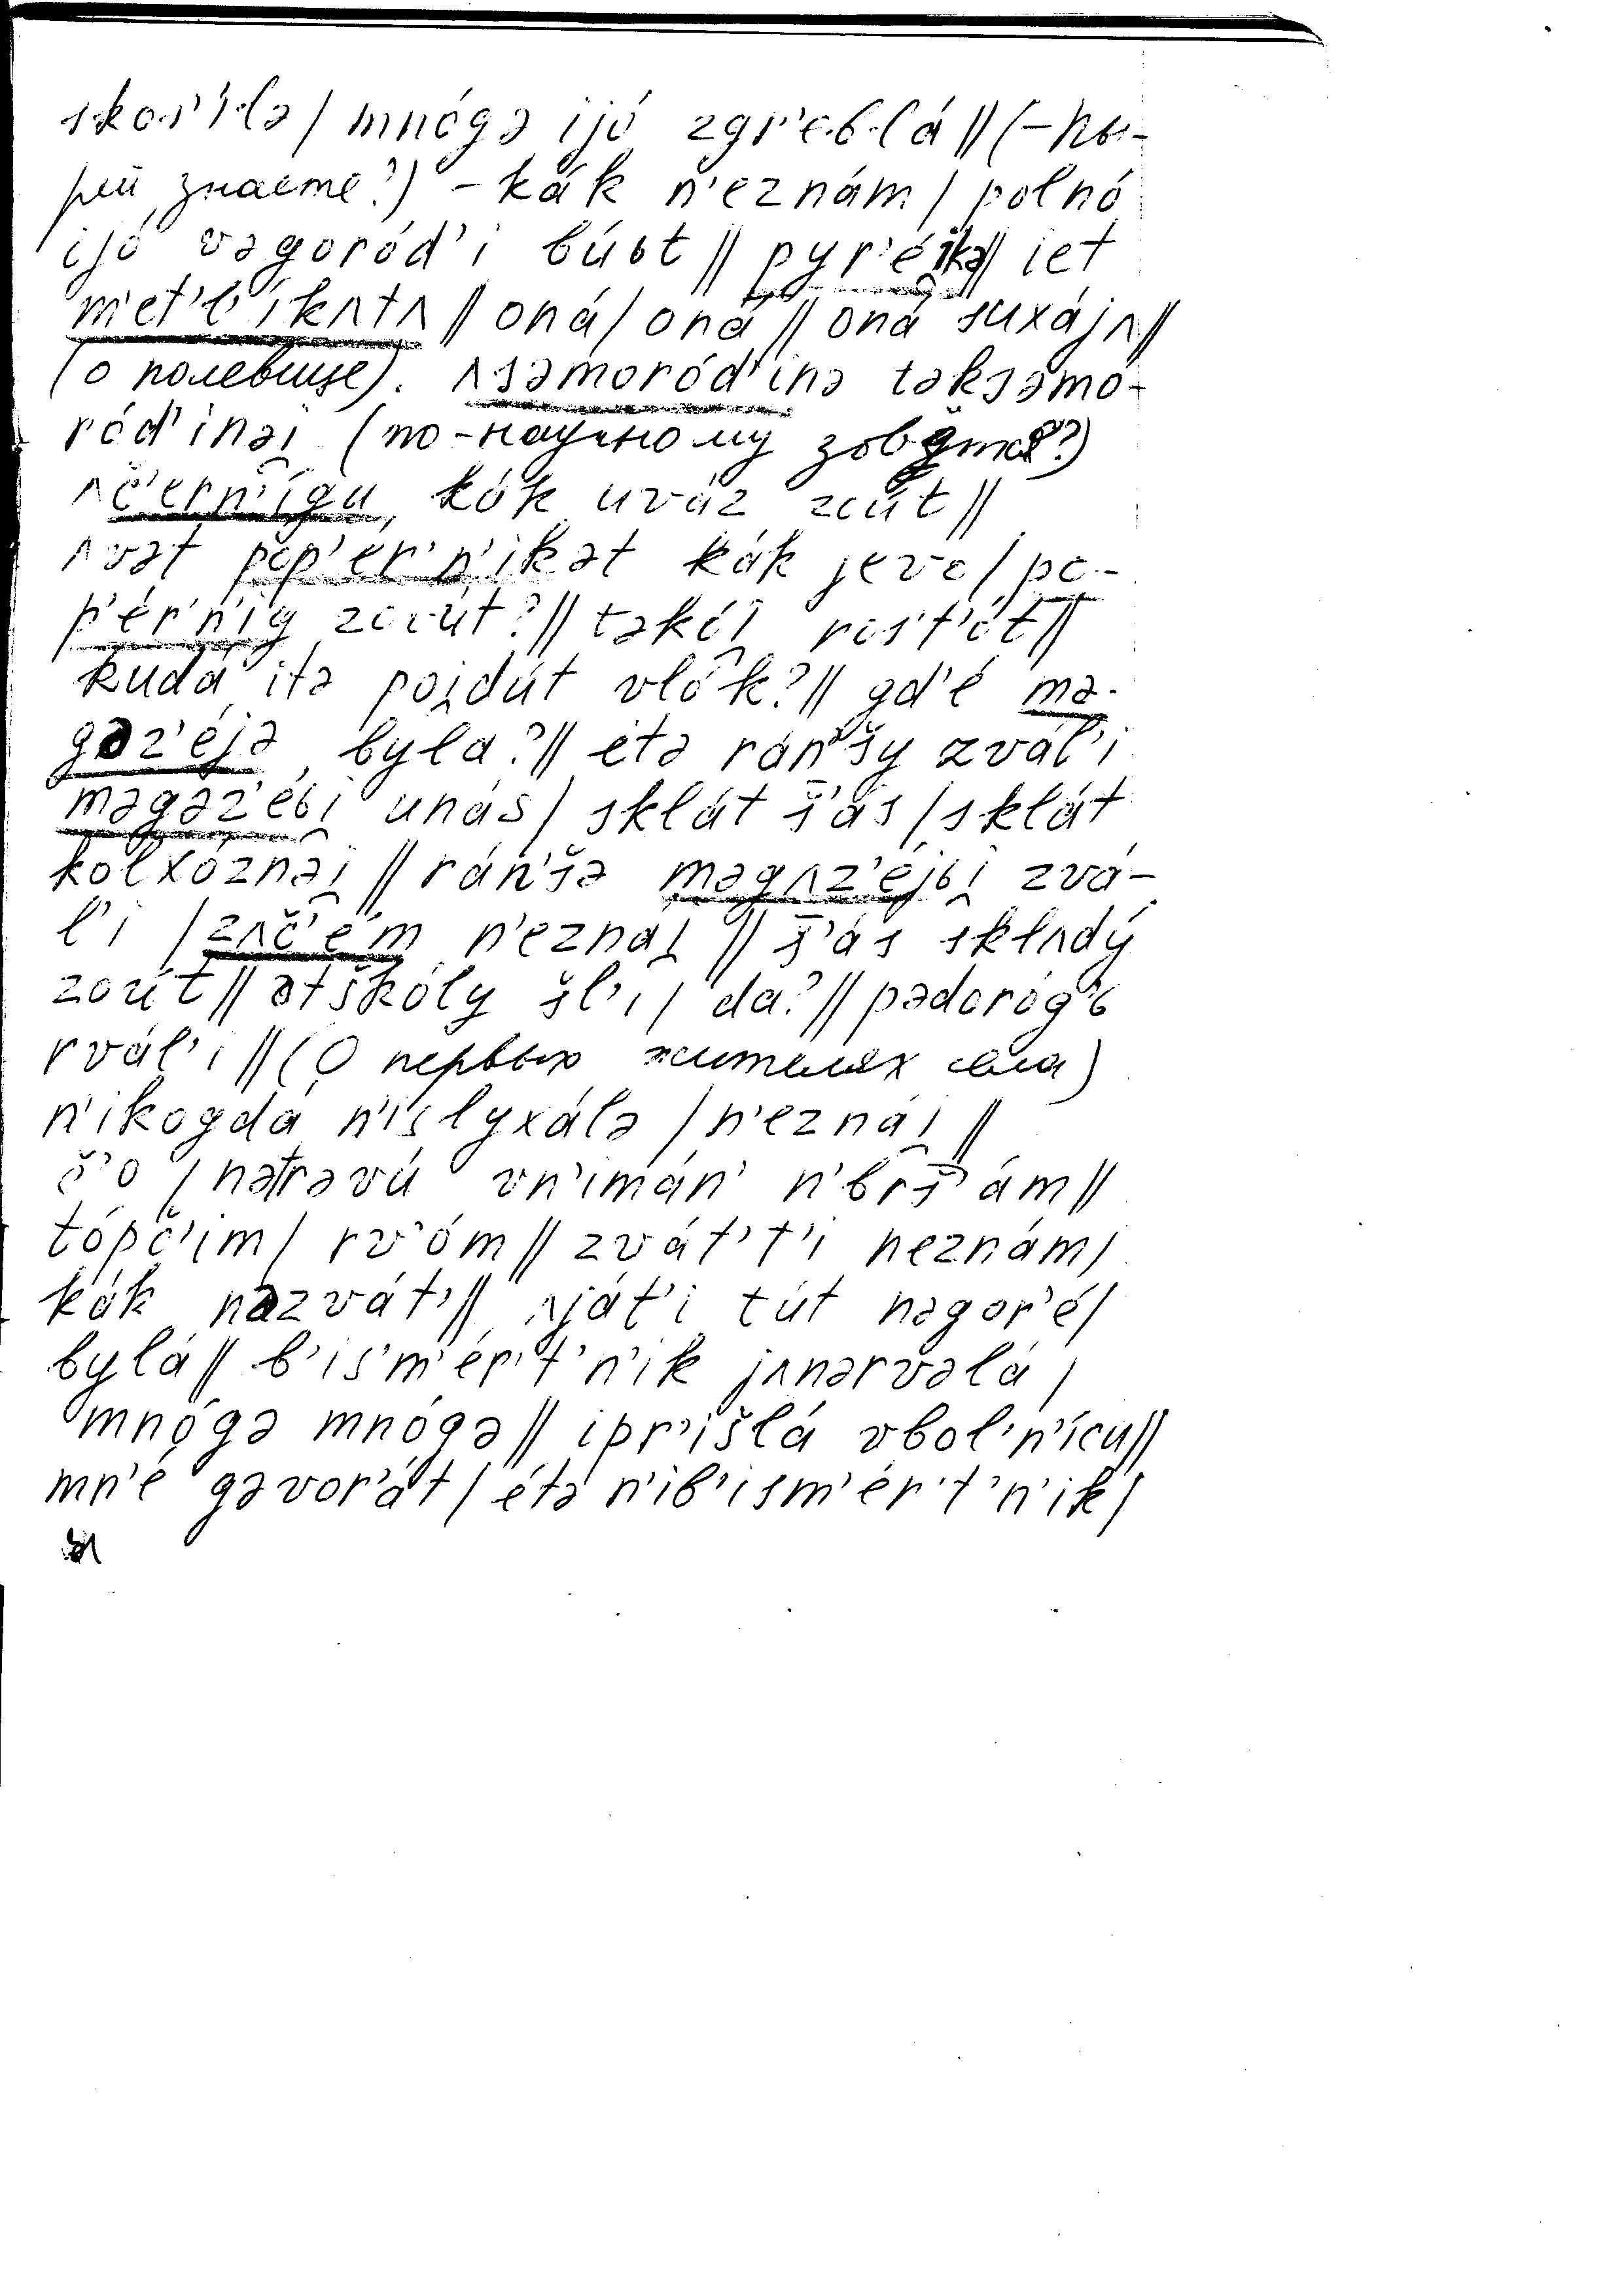 skos'ílə / mnógə ijó zgr'eblá // (– пы-
рей знаете?) – kák n'eznám / polnó
ijó vəgoród'i búьt // pyr'éi̯kə // iet
m'et'l'íkʌtʌ // oná / oná // oná suxájʌ //
(о полевице). ʌsəmoród'inə təksəmo-
ród'inəi̯ (по-научному зовёте?)
ʌč'ern'ígu, kók uváz zoút //
ʌvət pop'ér'n'ikət kák jevo / po-
p'ér'n'ig zovút? // təkói̯ rost'ót //
kudá itə poi̯dút vlók? // gd'é mə-
gəz'éjə byla? // étə rán'šy zvál'i
məgəz'éьi̯ unás / sklát š'ás / sklát
kolxóznəi̯ // rán'šə məgʌz'éjьi̯ zvá-
l'i / zʌč'ém n'eznai̯ // š'ás skladý
zoút // ətškóly šl'i / da? // pədoróg'ь
rvál'i // (О первых жителях села)
n'ikogdá n'islyxálə / n'eznái̯ //
č'o / nətrəvú vn'imán' n'ьrš'ám //
tópč'im / rv'óm // zvát't'i neznám /
kák nəzvát' // ʌját'i tút nəgor'é /
bylá // b'is'm'ér't'n'ik jʌnərvəlá /
mnógə mnógə // ipr'išlá vbol'n'ícu //
mn'é gəvor'át / étə n'ib'ism'ér't'n'ik /